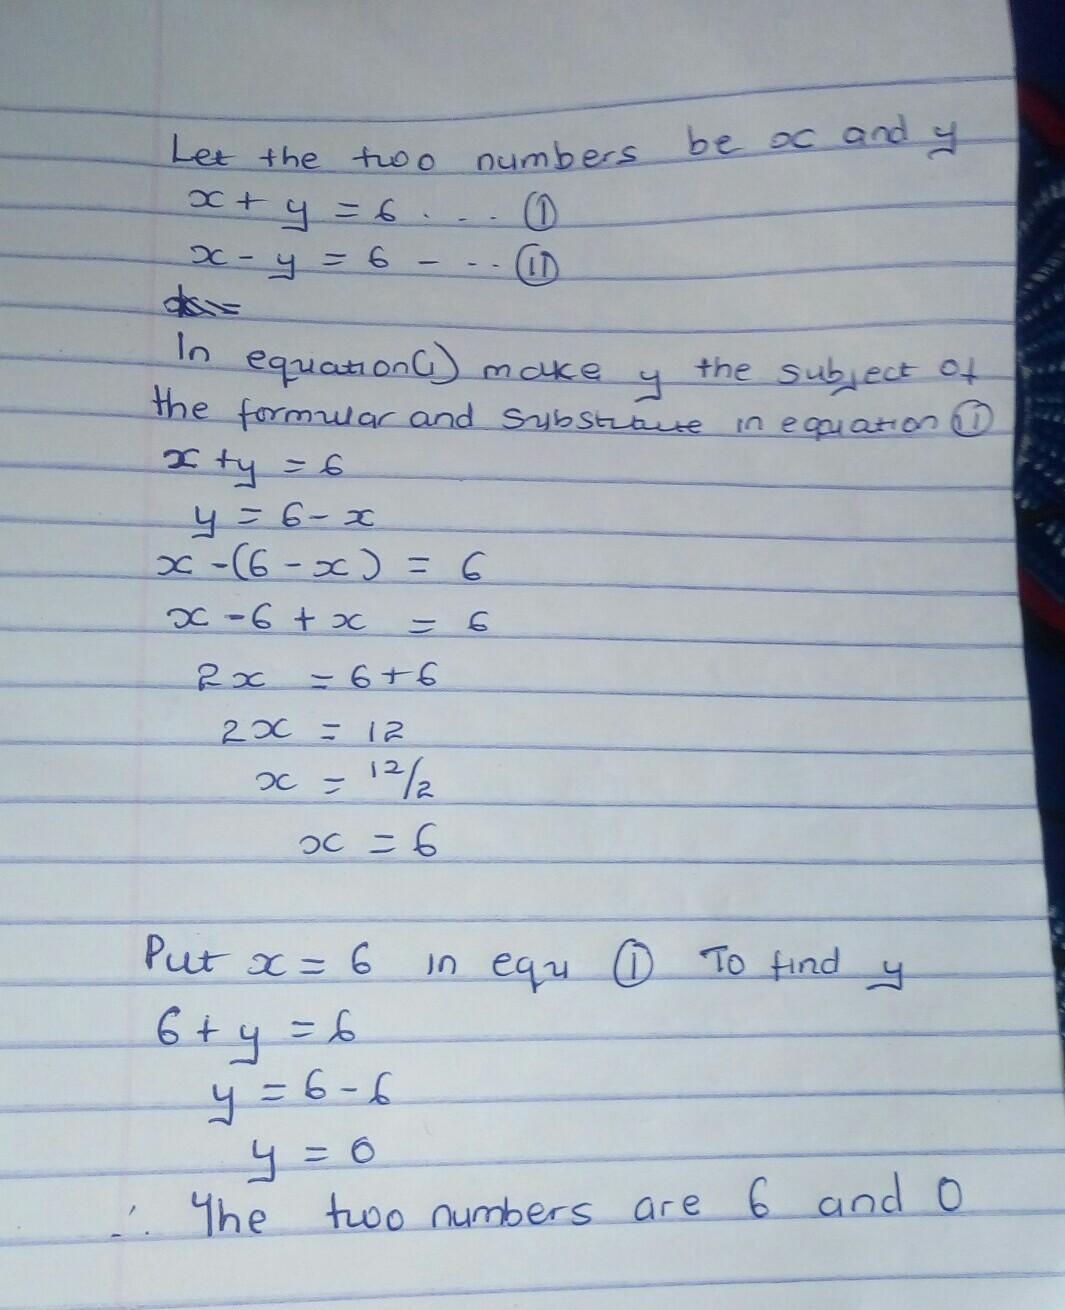 Let the two numbers be x and y
x + y = 6 . - - - (I)
x - y = 6 - - -- (II)
In equation(i) make y the subject of
the formular and substitute in equation (II)
x + y = 6
y = 6 - x
x - (6 - x) = 6
x - 6 + x = 6
2x = 6+6
2x = 12
x = 12/2
x = 6
Put x = 6 in equ (I) To find y
6 + y = 6
y = 6 - 6
y = 0
∴ The two numbers are 6 and 0